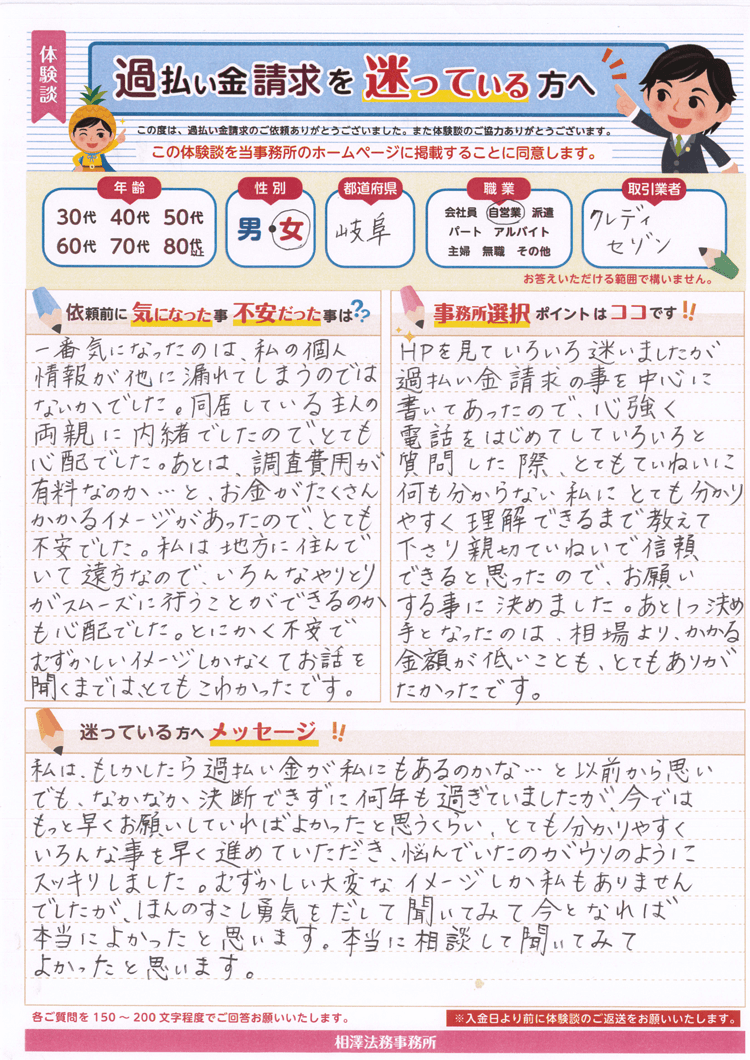 体験談
過払い金請求を迷っている方へ
この度は、過払い金請求のご依頼ありがとうございました。また体験談のご協力ありがとうございます。
この体験談を当事務所のホームページに掲載することに同意します。
年齢
30代 40代 50代
60代 70代 80代以上
性別
男・女
都道府県
岐阜
職業
会社員 自営業 派遣
パート アルバイト
主婦 無職 その他
取引業者
クレディ
セゾン
お答えいただける範囲で構いません。
依頼前に気になった事 不安だった事は??
一番気になったのは、私の個人
情報が他に漏れてしまうのでは
ないかでした。同居している主人の
両親に内緒でしたので、とても
心配でした。あとは、調査費用が
有料なのか…と、お金がたくさん
かかるイメージがあったので、とても
不安でした。私は地方に住んで
いて遠方なので、いろんなやりとり
がスムーズに行うことができるのか
も心配でした。とにかく不安で
むずかしいイメージしかなくてお話を
聞くまでは、とてもこわかったです。
事務所選択 ポイントはココです!!
HPを見ていろいろ迷いましたが
過払い金請求の事を中心に
書いてあったので、心強く
電話をはじめてしていろいろと
質問した際、とてもていねいに
何も分からない私にとても分かり
やすく理解できるまで教えて
下さり親切ていねいで信頼
できると思ったので、お願い
する事に決めました。あと1つ決め
手となったのは、相場より、かかる
金額が低いことも、とてもありが
たかったです。
迷っている方へ メッセージ!!
私は、もしかしたら過払い金が私にもあるのかな…と以前から思い
でも、なかなか決断できずに何年も過ぎていましたが、今では
もっと早くお願いしていればよかったと思うくらい、とても分かりやすく
いろんな事を早く進めていただき、悩んでいたのがウソのように
スッキリしました。むずかしい大変なイメージしか私もありません
でしたが、ほんのすこし勇気をだして聞いてみて今となれば
本当によかったと思います。本当に相談して聞いてみて
よかったと思います。
各ご質問を150〜200文字程度でご回答お願いいたします。
※入金日より前に体験談のご返送をお願いいたします。
相澤法務事務所